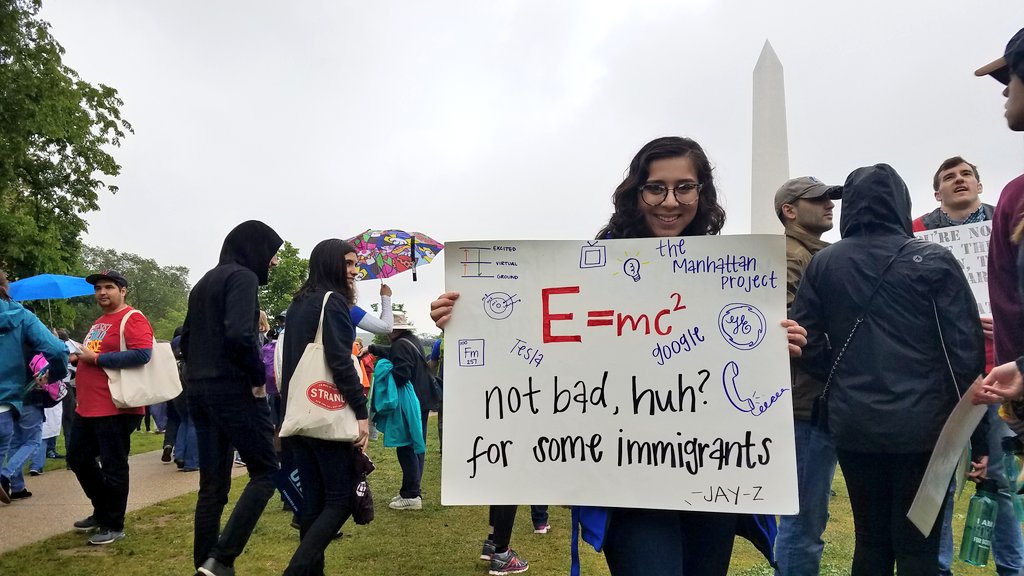 EXCITED
VIRTUAL
GROUND
the
Manhattan
Project
E=mc²
100
Fm
257
Tesla
google
not bad, huh?
for some immigrants
-JAY-Z
STRAND